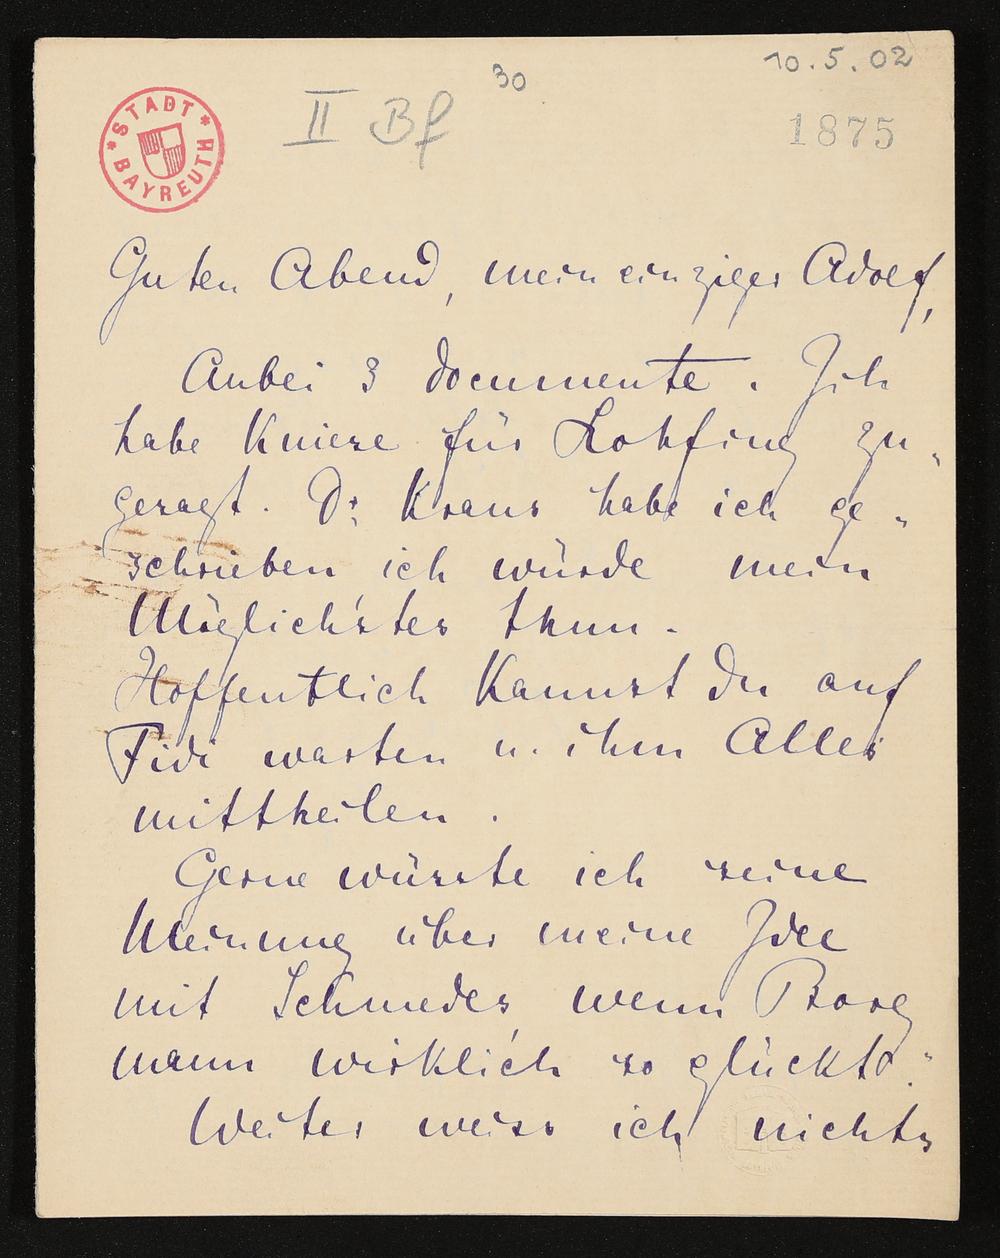 30
10.5.02
II Bf
1875
* STADT * BAYREUTH
Guten Abend, mein einziger Adolf,
Anbei 3 documente. Ich
habe Kniese für Lohfing zu-
gesagt. Dr Kraus habe ich ge-
schrieben ich würde mein
Möglichstes thun.
Hoffentlich kannst du auf
Fidi warten u. ihm Alles
mittheilen.
Gerne wüsste ich seine
Meinung über meine Idee
mit Schmedes, wenn Borg
mann wirklich so glückt?
Weiter weiss ich nichts